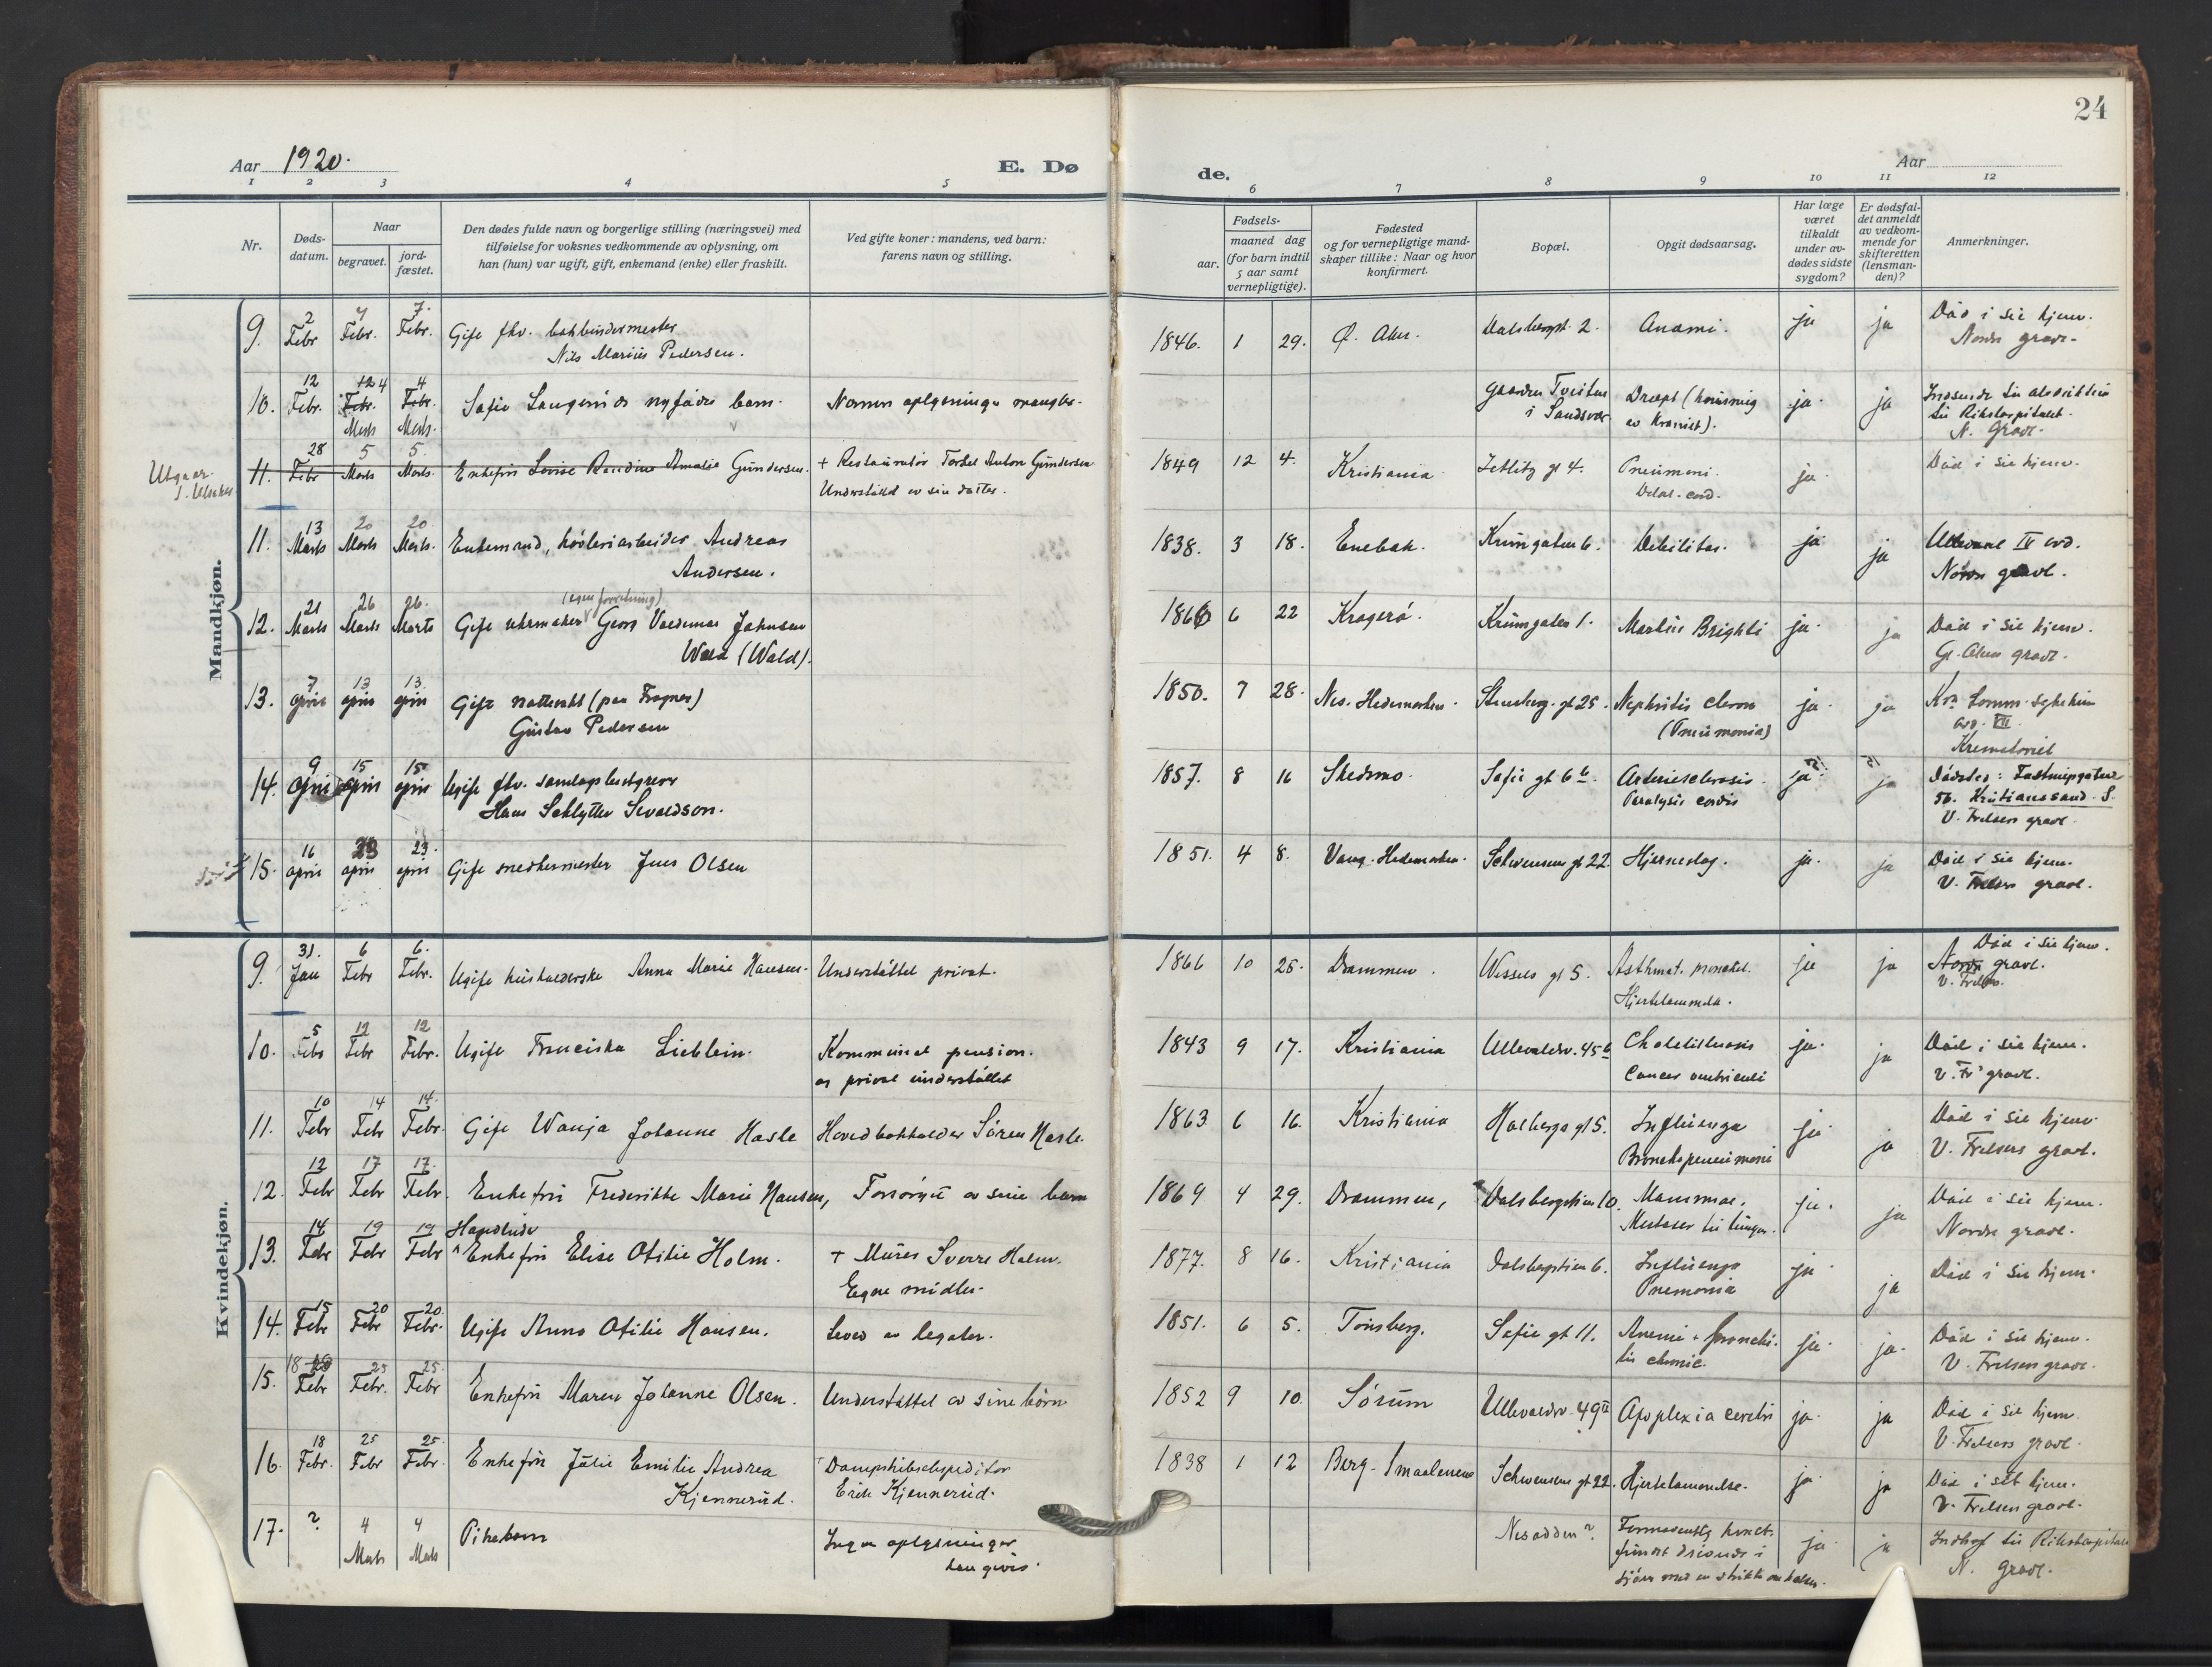 24
Aar 1920.
E. Dø
de.
Aar
1 2 3 4 5 6 7 8 9 10 11 12
Nr.
Døds-
datum.
Naar
begravet.
jord-
fæstet.
Den dødes fulde navn og borgerlige stilling (næringsvei) med
tilføielse for voksnes vedkommende av oplysning, om
han (hun) var ugift, gift, enkemand (enke) eller fraskilt.
Ved gifte koner: mandens, ved barn:
farens navn og stilling.
Fødsels-
aar.
maaned dag
(for barn indtil
5 aar samt
vernepligtige).
Fødested
og for vernepligtige mand-
skaper tillike: Naar og hvor
konfirmert.
Bopæl.
Opgit dødsaarsag.
Har læge
været
tilkaldt
under av-
dødes sidste
sygdom?
Er dødsfal-
det anmeldt
av vedkom-
mende for
skifteretten
(lensman-
den)?
Anmerkninger.
Mandkjøn.
9. 2 Febr 7 Febr. 7. Febr. Gift fhv. bokbindermester 1846. 1 29. Ø. Aker. Dalsbergst. 2. Anæmi. ja ja Død i sit hjem.
Nils Marius Pedersen. Nordre gravl.
10. 12 Febr. 12 4 Febr. Marts 4 Febr. Marts. Sofie Laugerüds nyfødte barn. Nærmere oplysninger mangler. gaarden Tveiten Dræpt (knusning ja ja
i Sandsvær av kraniet). til Rikshospitalet.
N. Gravl.
11. 28 Febr 5 Marts 5. Marts. Enkefru Lovise Randine Amalie Gundersen. + Restauratør Torkel Anton Gundersen 1849 12 4. Kristiania Zetlitz gt 4. Pneumoni. ja. Død i sit hjem.
Understøttet av sin datter.
11. 13 Marts 20 Marts 20 Marts. Enkemand, høvleriarbeider Andreas 1838. 3 18. Enebak. Krumgaten 6. Debilitas. ja ja Ullevaal IV avd.
Andersen. Nordre gravl.
(egen forretning)
12. 21 Marts 26 Marts 26. Marts Gift uhrmaker Georg Valdemar Johnsen 1866 6 22 Kragerø. Krumgaten 1. Morbus Brighti ja. ja Død i sit hjem.
Wold (Wald). Gl. Aker gravl.
13. 7 april 13 april 13. april Gift nattevakt (paa Frogner) 1850. 7 28. Nes. Hedemarken. Stensberg. gt 25. Nephritis chron ja. ja Kra Komm. Sykehus
Gustav Pedersen (Pneumonia) avd. VII.
Krematoriet
14. 9 april 15 april 15 april Ugift fhv. samlagsbestyrer 1857. 8 16 Skedsmo. Sofie gt 6 b. Arteriesclerosis. ja ja Dødsted: Festningsgaten
Hans Schlytter Sevaldson. Paralysis cordis 56. Kristianssand S.
V. Frelsers gravl.
15. 16 april 23 april 23. april Gift snedkermester Jens Olsen 1851. 4 8. Vang. Hedemarken. Schwensens gt 22 Hjerneslag. ja. ja Død i sit hjem.
V. Frelsers gravl.
Kvindekjøn.
9. 31. Jan 6 Febr 6. Febr. Ugift husholderske Anna Marie Hansen. Understøttet privat. 1866 10 25. Drammen. Wessels gt 5. Asthmat. bronchial. ja ja Død i sit hjem.
Hjertelammelse. Nordre gravl.
V. Frelsers.
10. 5 Febr 12 Febr 12 Febr. Ugift Franciska Lieblein. Kommunal pension. 1843 9 17. Kristiania Ullevaalsv. 45 b Cholelithiasis ja. ja Død i sit hjem.
og privat understøttet Cancer ventriculi V. Fr' gravl.
11. 10 Febr 14 Febr 14. Febr. Gift Wanja Johanne Hasle Hovedbokholder Søren Hasle. 1863 6 16. Kristiania Holbergs gt 5. Influenza ja ja Død i sit hjem
Bronchopneumoni V. Frelsers gravl.
12. 12 Febr 17 Febr 17. Febr. Enkefru Frederikke Marie Hansen, Forsørget av sine barn 1869 4 29. Drammen, Dalsbergstien 10. Mammae, ja. ja Død i sit hjem.
Metaser til lungen. Nordre gravl.
Handlende
13. 14 Febr 19 Febr 19 Febr Enkefru Elise Otilie Holm. + Murer Sverre Holm. 1877. 8 16. Kristiania Dalsbergstien 6. Influenza ja ja Død i sit hjem.
Egne midler. Pnemonia
14. 15 Febr 20 Febr 20. Febr. Ugift Anna Otilie Hansen. Leved av legater. 1851. 6 5. Tønsberg. Sofie gt 11. Anemi + bronchi- ja. ja. Død i sit hjem.
tis chronic. V. Frelsers gravl.
15. 18 Febr 25 Febr. 25. Febr Enkefru Maren Johanne Olsen. Understøttet av sine børn 1852 9 10. Sørum Ullevaalsv. 49 II Apoplexia cerebri ja. ja Død i sit hjem.
V. Frelsers gravl.
16. 18 Febr. 25 Febr 25. Febr. Enkefru Julie Emilie Andrea Dampskibsekspeditør 1838 1 12 Berg. Smaalenene Schwensens gt 22. Hjertelammelse. ja. ja Død i sit hjem.
Kjennerud. Erik Kjennerud. V. Frelsers gravl.
17. ? 4 Marts 4 Marts Pikebarn Ingen oplysninger Nesodden? Formodentlig kvalt. ja. ja Indkof til Rikshospitalet
kan gives. fundet drivende i N. Gravl.
sjøen med en strikke om halsen.